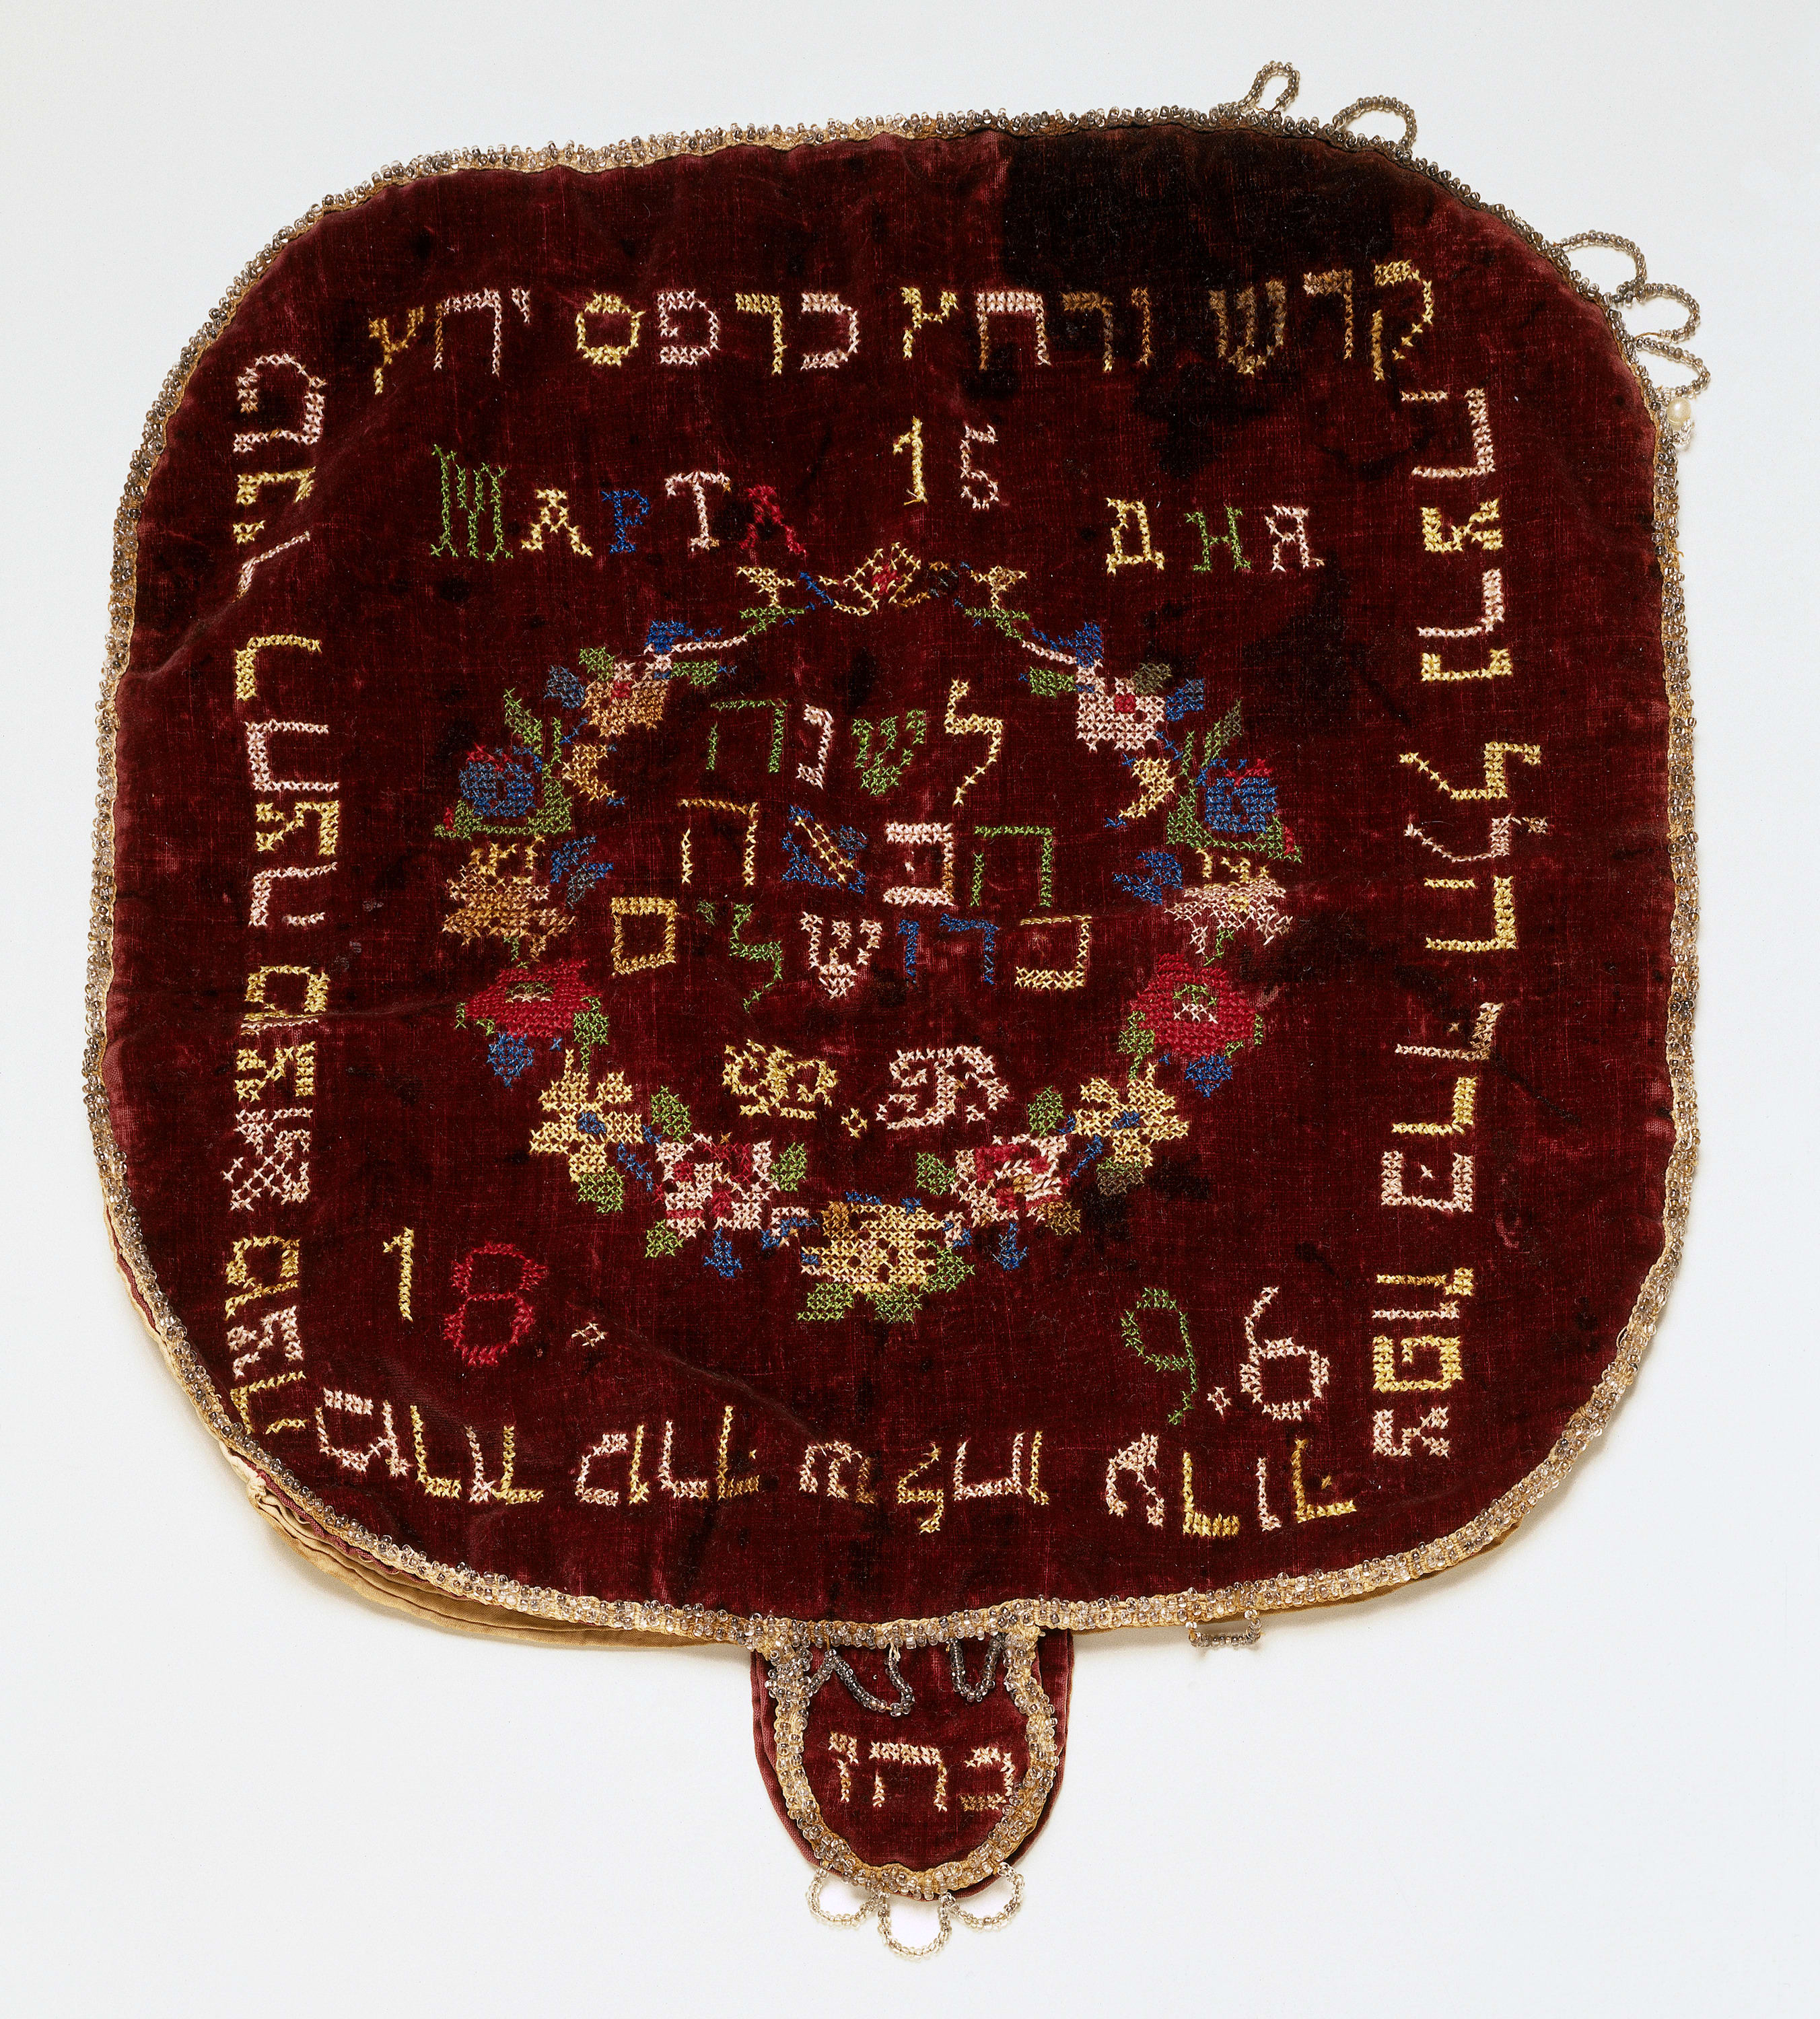 קדש ורחץ כרפס יחץ
מגיד רחצה מוציא מצה
מרור כורך שלחן ערוך
צפון ברך הלל נרצה
МАРТА 15 ДНЯ
לשנה
הבאה
ברושלם
18. 9.6
כהן